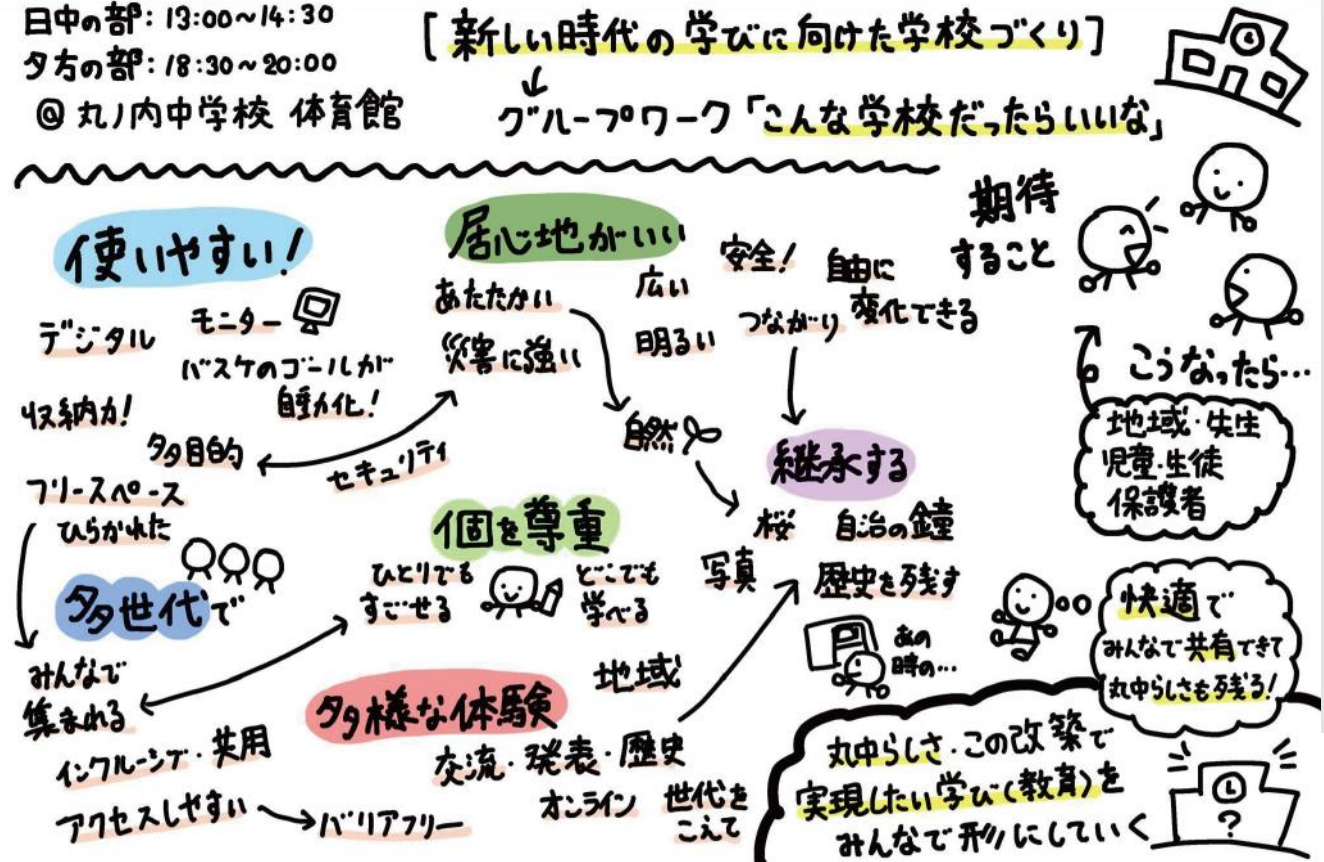 日中の部：13:00～14:30
夕方の部：18:30～20:00
@ 丸ノ内中学校 体育館
[新しい時代の学びに向けた学校づくり]
グループワーク「こんな学校だったらいいな」
使いやすい!
デジタル
モニター
バスケのゴールが
自動化!
収納力!
多目的
フリースペース
ひらかれた
セキュリティ
居心地がいい
あたたかい
災害に強い
広い
明るい
安全!
つながり
自由に
変化できる
自然
期待
すること
こうなったら…
地域・先生
児童・生徒
保護者
継承する
桜
自治の鐘
写真
歴史を残す
あの
時の…
個を尊重
ひとりでも
すごせる
どこでも
学べる
多世代で
みんなで
集まれる
インクルーシブ・共用
アクセスしやすい
バリアフリー
多様な体験
地域
交流・発表・歴史
オンライン
世代を
こえて
快適で
みんなで共有できて
丸中らしさも残る!
丸中らしさ・この改築で
実現したい学び(教育)を
みんなで形にしていく
?